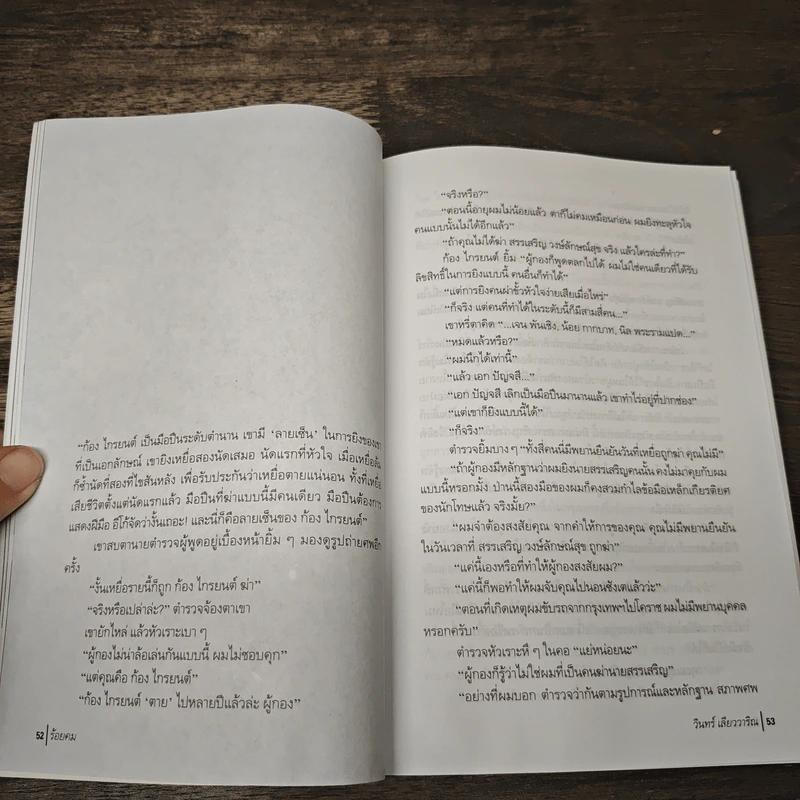 “ก้อง ไกรยนต์ เป็นมือปืนระดับตำนาน เขามี ‘ลายเซ็น’ ในการยิงของเขา
ที่เป็นเอกลักษณ์ เขายิงเหยื่อสองนัดเสมอ นัดแรกที่หัวใจ เมื่อเหยื่อล้ม
ก็ซ้ำนัดที่สองที่ไขสันหลัง เพื่อรับประกันว่าเหยื่อตายแน่นอน ทั้งที่เหยื่อ
เสียชีวิตตั้งแต่นัดแรกแล้ว มือปืนที่ฆ่าแบบนี้มีคนเดียว มือปืนต้องการ
แสดงฝีมือ อีโก้จัดว่างั้นเถอะ! และนี่ก็คือลายเซ็นของ ก้อง ไกรยนต์”
เขาสบตานายตำรวจผู้พูดอยู่เบื้องหน้ายิ้ม ๆ มองดูรูปถ่ายศพอีก
ครั้ง
“งั้นเหยื่อรายนี้ก็ถูก ก้อง ไกรยนต์ ฆ่า”
“จริงหรือเปล่าล่ะ?” ตำรวจจ้องตาเขา
เขายักไหล่ แล้วหัวเราะเบา ๆ
“ผู้กองไม่น่าล้อเล่นกันแบบนี้ ผมไม่ชอบคุก”
“แต่คุณคือ ก้อง ไกรยนต์”
“ก้อง ไกรยนต์ ‘ตาย’ ไปหลายปีแล้วล่ะ ผู้กอง”
52 | ร้อยคม
“จริงหรือ?”
“ตอนนี้อายุผมไม่น้อยแล้ว ตาก็ไม่คมเหมือนก่อน ผมยิงทะลุหัวใจ
คนแบบนั้นไม่ได้อีกแล้ว”
“ถ้าคุณไม่ได้ฆ่า สรรเสริญ วงษ์ลักษณ์สุข จริง แล้วใครล่ะที่ทำ?”
ก้อง ไกรยนต์ ยิ้ม “ผู้กองก็พูดตลกไปได้ ผมไม่ใช่คนเดียวที่ได้รับ
ลิขสิทธิ์ในการยิงแบบนี้ คนอื่นก็ทำได้”
“แต่การยิงคนผ่าขั้วหัวใจง่ายเสียเมื่อไหร่”
“ก็จริง แต่คนที่ทำได้ในระดับนี้ก็มีสามสี่คน...”
เขาหรี่ตาคิด “...เจน พันเชิง, น้อย กากบาท, นิล พระรามแปด...”
“หมดแล้วหรือ?”
“ผมนึกได้เท่านี้”
“แล้ว เอก ปัญจสี...”
“เอก ปัญจสี เลิกเป็นมือปืนมานานแล้ว เขาทำไร่อยู่ที่ปากช่อง”
“แต่เขาก็ยิงแบบนี้ได้”
“ก็จริง”
ตำรวจยิ้มบาง ๆ “ทั้งสี่คนนี้มีพยานยืนยันวันที่เหยื่อถูกฆ่า คุณไม่มี”
“ถ้าผู้กองมีหลักฐานว่าผมยิงนายสรรเสริญคนนั้น คงไม่มาคุยกับผม
แบบนี้หรอกมั้ง ป่านนี้สองมือของผมก็คงสวมกำไลข้อมือเหล็กเกียรติยศ
ของนักโทษแล้ว จริงมั้ย?”
“ผมจำต้องสงสัยคุณ จากคำให้การของคุณ คุณไม่มีพยานยืนยัน
ในวันเวลาที่ สรรเสริญ วงษ์ลักษณ์สุข ถูกฆ่า”
“แค่นี้เองหรือที่ทำให้ผู้กองสงสัยผม?”
“แค่นี้ก็พอทำให้ผมจับคุณไปนอนซังเตแล้วว่ะ”
“ตอนที่เกิดเหตุผมขับรถจากกรุงเทพฯไปโคราช ผมไม่มีพยานบุคคล
หรอกครับ”
ตำรวจหัวเราะหึ ๆ ในคอ “แย่หน่อยนะ”
“ผู้กองก็รู้ว่าไม่ใช่ผมที่เป็นคนฆ่านายสรรเสริญ”
“อย่างที่ผมบอก ตำรวจว่ากันตามรูปการณ์และหลักฐาน สภาพศพ
วินทร์ เลียววาริณ | 53